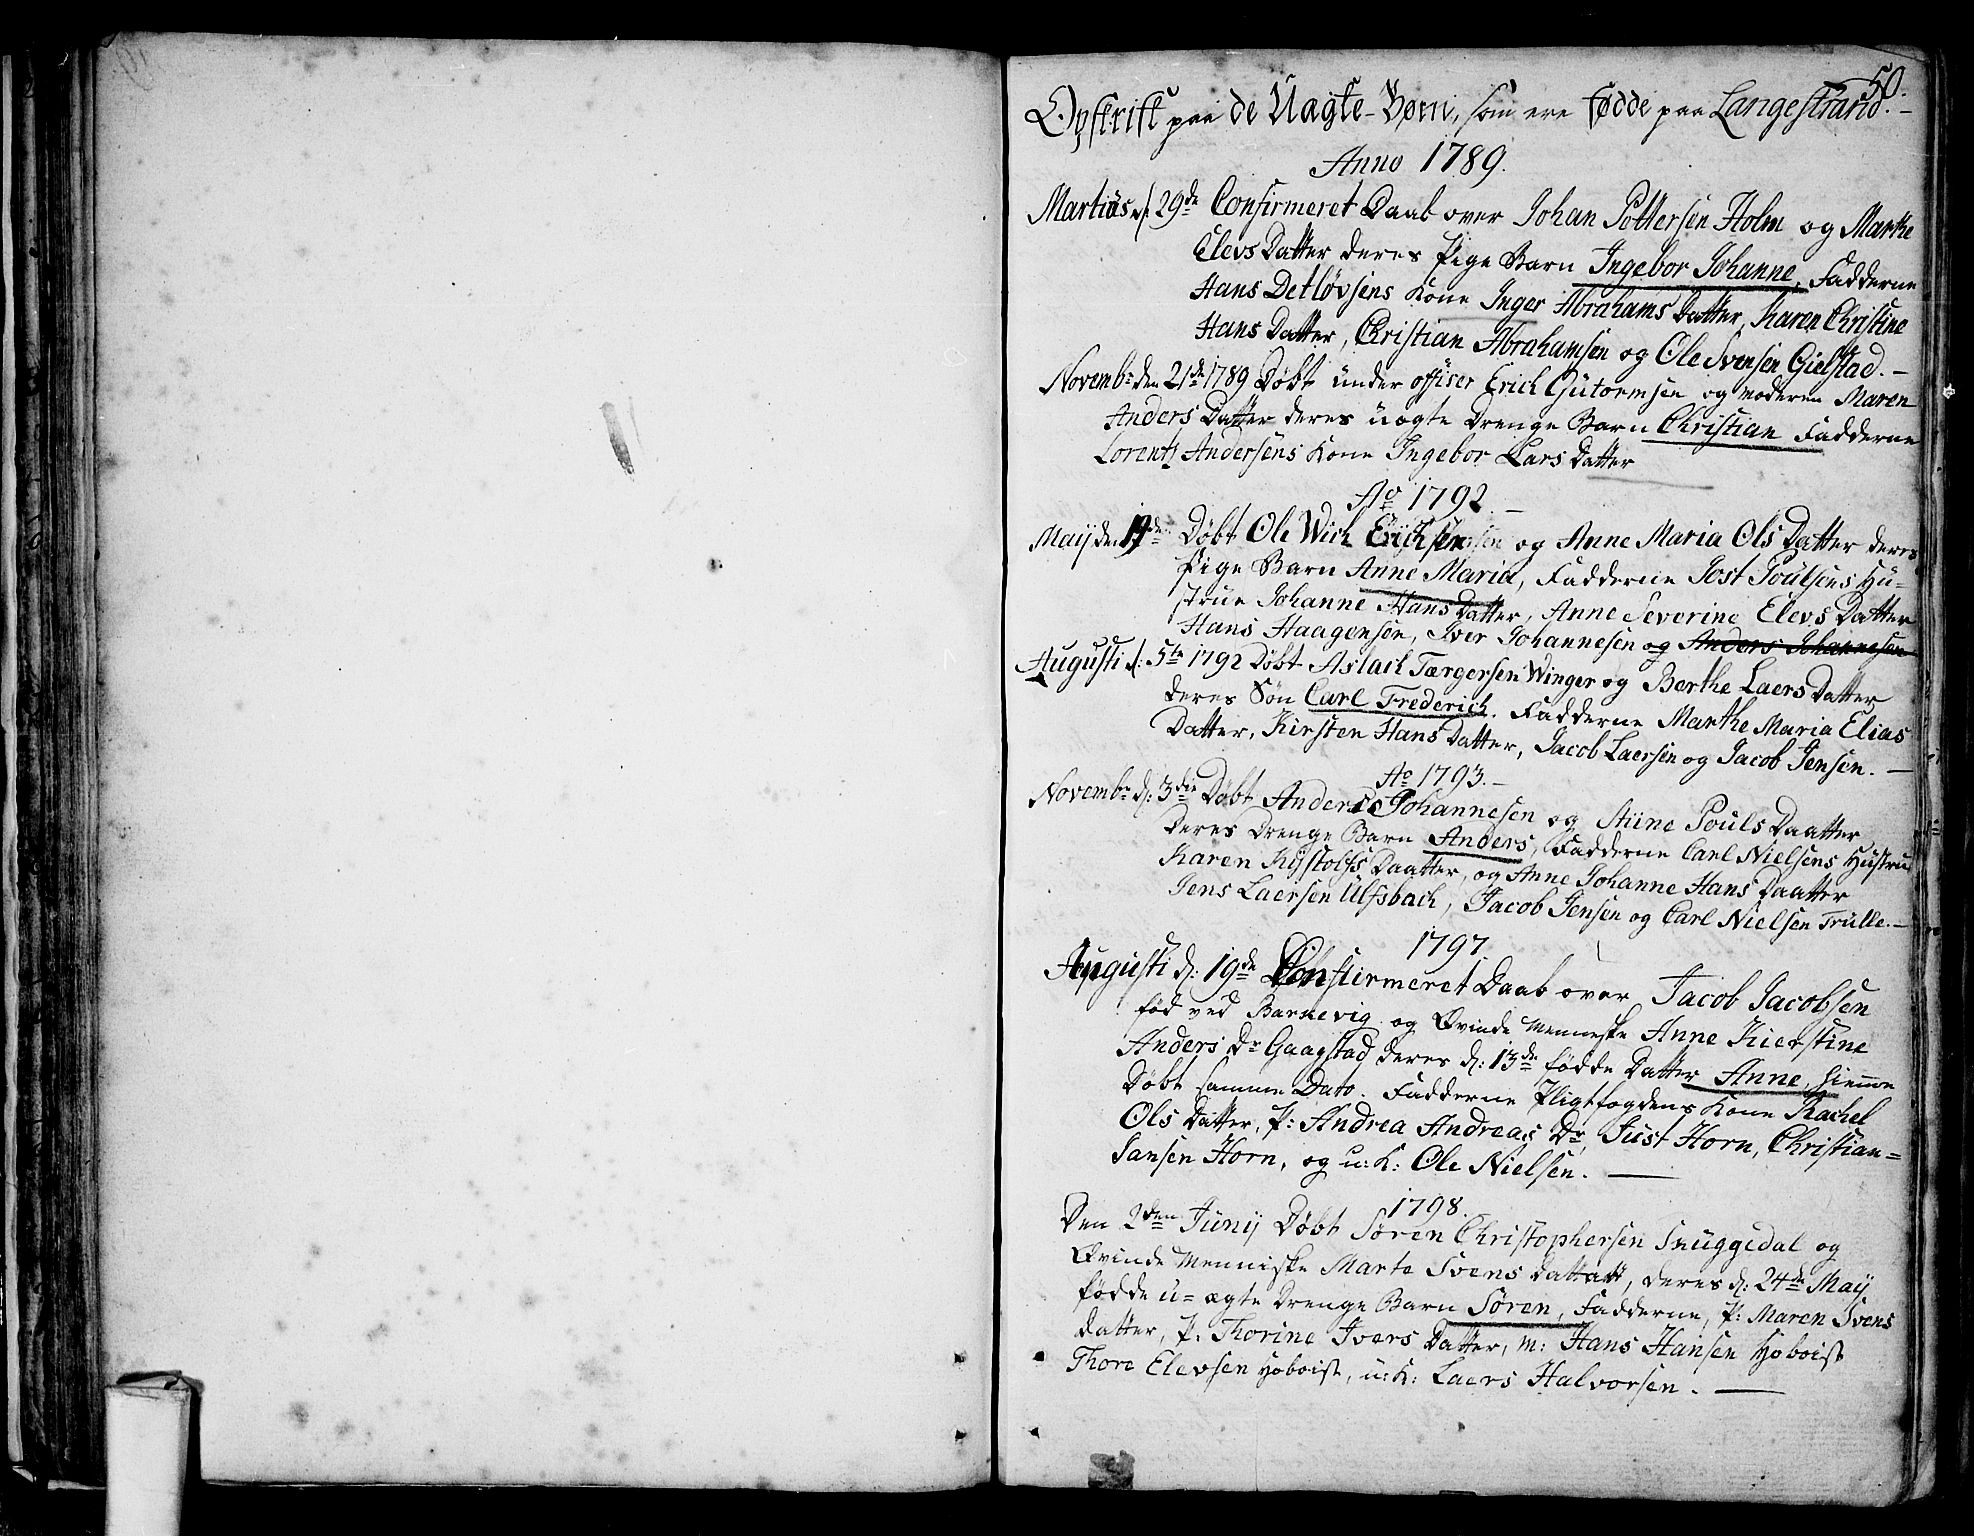 50.
Opskrift paa de Uægte-Børn, som ere fødde paa Langestrand. -
Anno 1789.
Martius d: 29de Confirmeret Daab over Johan Pettersen Holm og Marthe
Elevs Datter deres Pige Barn Ingebor Johanne, Fadderne
Hans Detløvsens Kone Inger Abrahams Datter, Karen Christine
Hans Datter, Christian Abrahamsen og Ole Svensen Gielstad. -
Novembr den 21de 1789 Døbt under offiser Erich Gutormsen og moderen Maren
Anders Datter deres uægte Drenge Barn Christian Fadderne
Lorentz Andersens Kone Ingebor Lars Datter
Ao 1792. -
Maij den 19de Døbt Ole Wich Erichsen og Anne Maria Ols Datter deres
Pige Barn Anne Maria, Fadderne Jost Poulsens Hu-
strue Johanne Hans Datter, Anne Severine Elevs Datter
Hans Haagensen, Iver Johannesen og Anders Johannesen
Augusti d: 5te 1792 Døbt Aslach Tærgersen Winger og Berthe Laers Datter
deres Søn Carl Frederich. Fadderne Marthe Maria Elias
Datter, Kirsten Hans Datter, Jacob Laersen og Jacob Jensen. -
Ao 1793. -
Novembr d: 3die Døbt Anders Johannesen og Stine Pouls Daatter
Deres Drenge Barn Anders, Fadderne Carl Nielsens Hustru
Karen Kystolfs Daatter, og Anne Johanne Hans Daatter
Jens Laersen Ulfsbach, Jacob Jensen og Carl Nielsen Trulle. -
1797.
Augusti d: 19de Confirmeret Daab over Jacob Jacobsen
fød ved Barnevig og Qvinde Menneske Anne Kierstine
Anders Dr Gaagstad deres d: 13de fødde Datter Anne, hieme
Døbt samme Dato. Fadderne Pligtfogdens Kone Rachel
Ols Datter, P: Andrea Andreas Dr Just Horn, Christian=
Jansen Horn, og u: K: Ole Nielsen. -
1798.
Den 2den Junij Døbt Søren Christophersen Snuggedal og
Qvinde Menniske Marte Svens Datter, deres d: 24de May
fødde u= ægte Drenge Barn Søren, Fadderne, P: Maren Svens
datter, P: Thorine Ivers Datter, M: Hans Hansen Hoboist
Thore Elevsen Hoboist, u: K: Laers Halvorsen. -